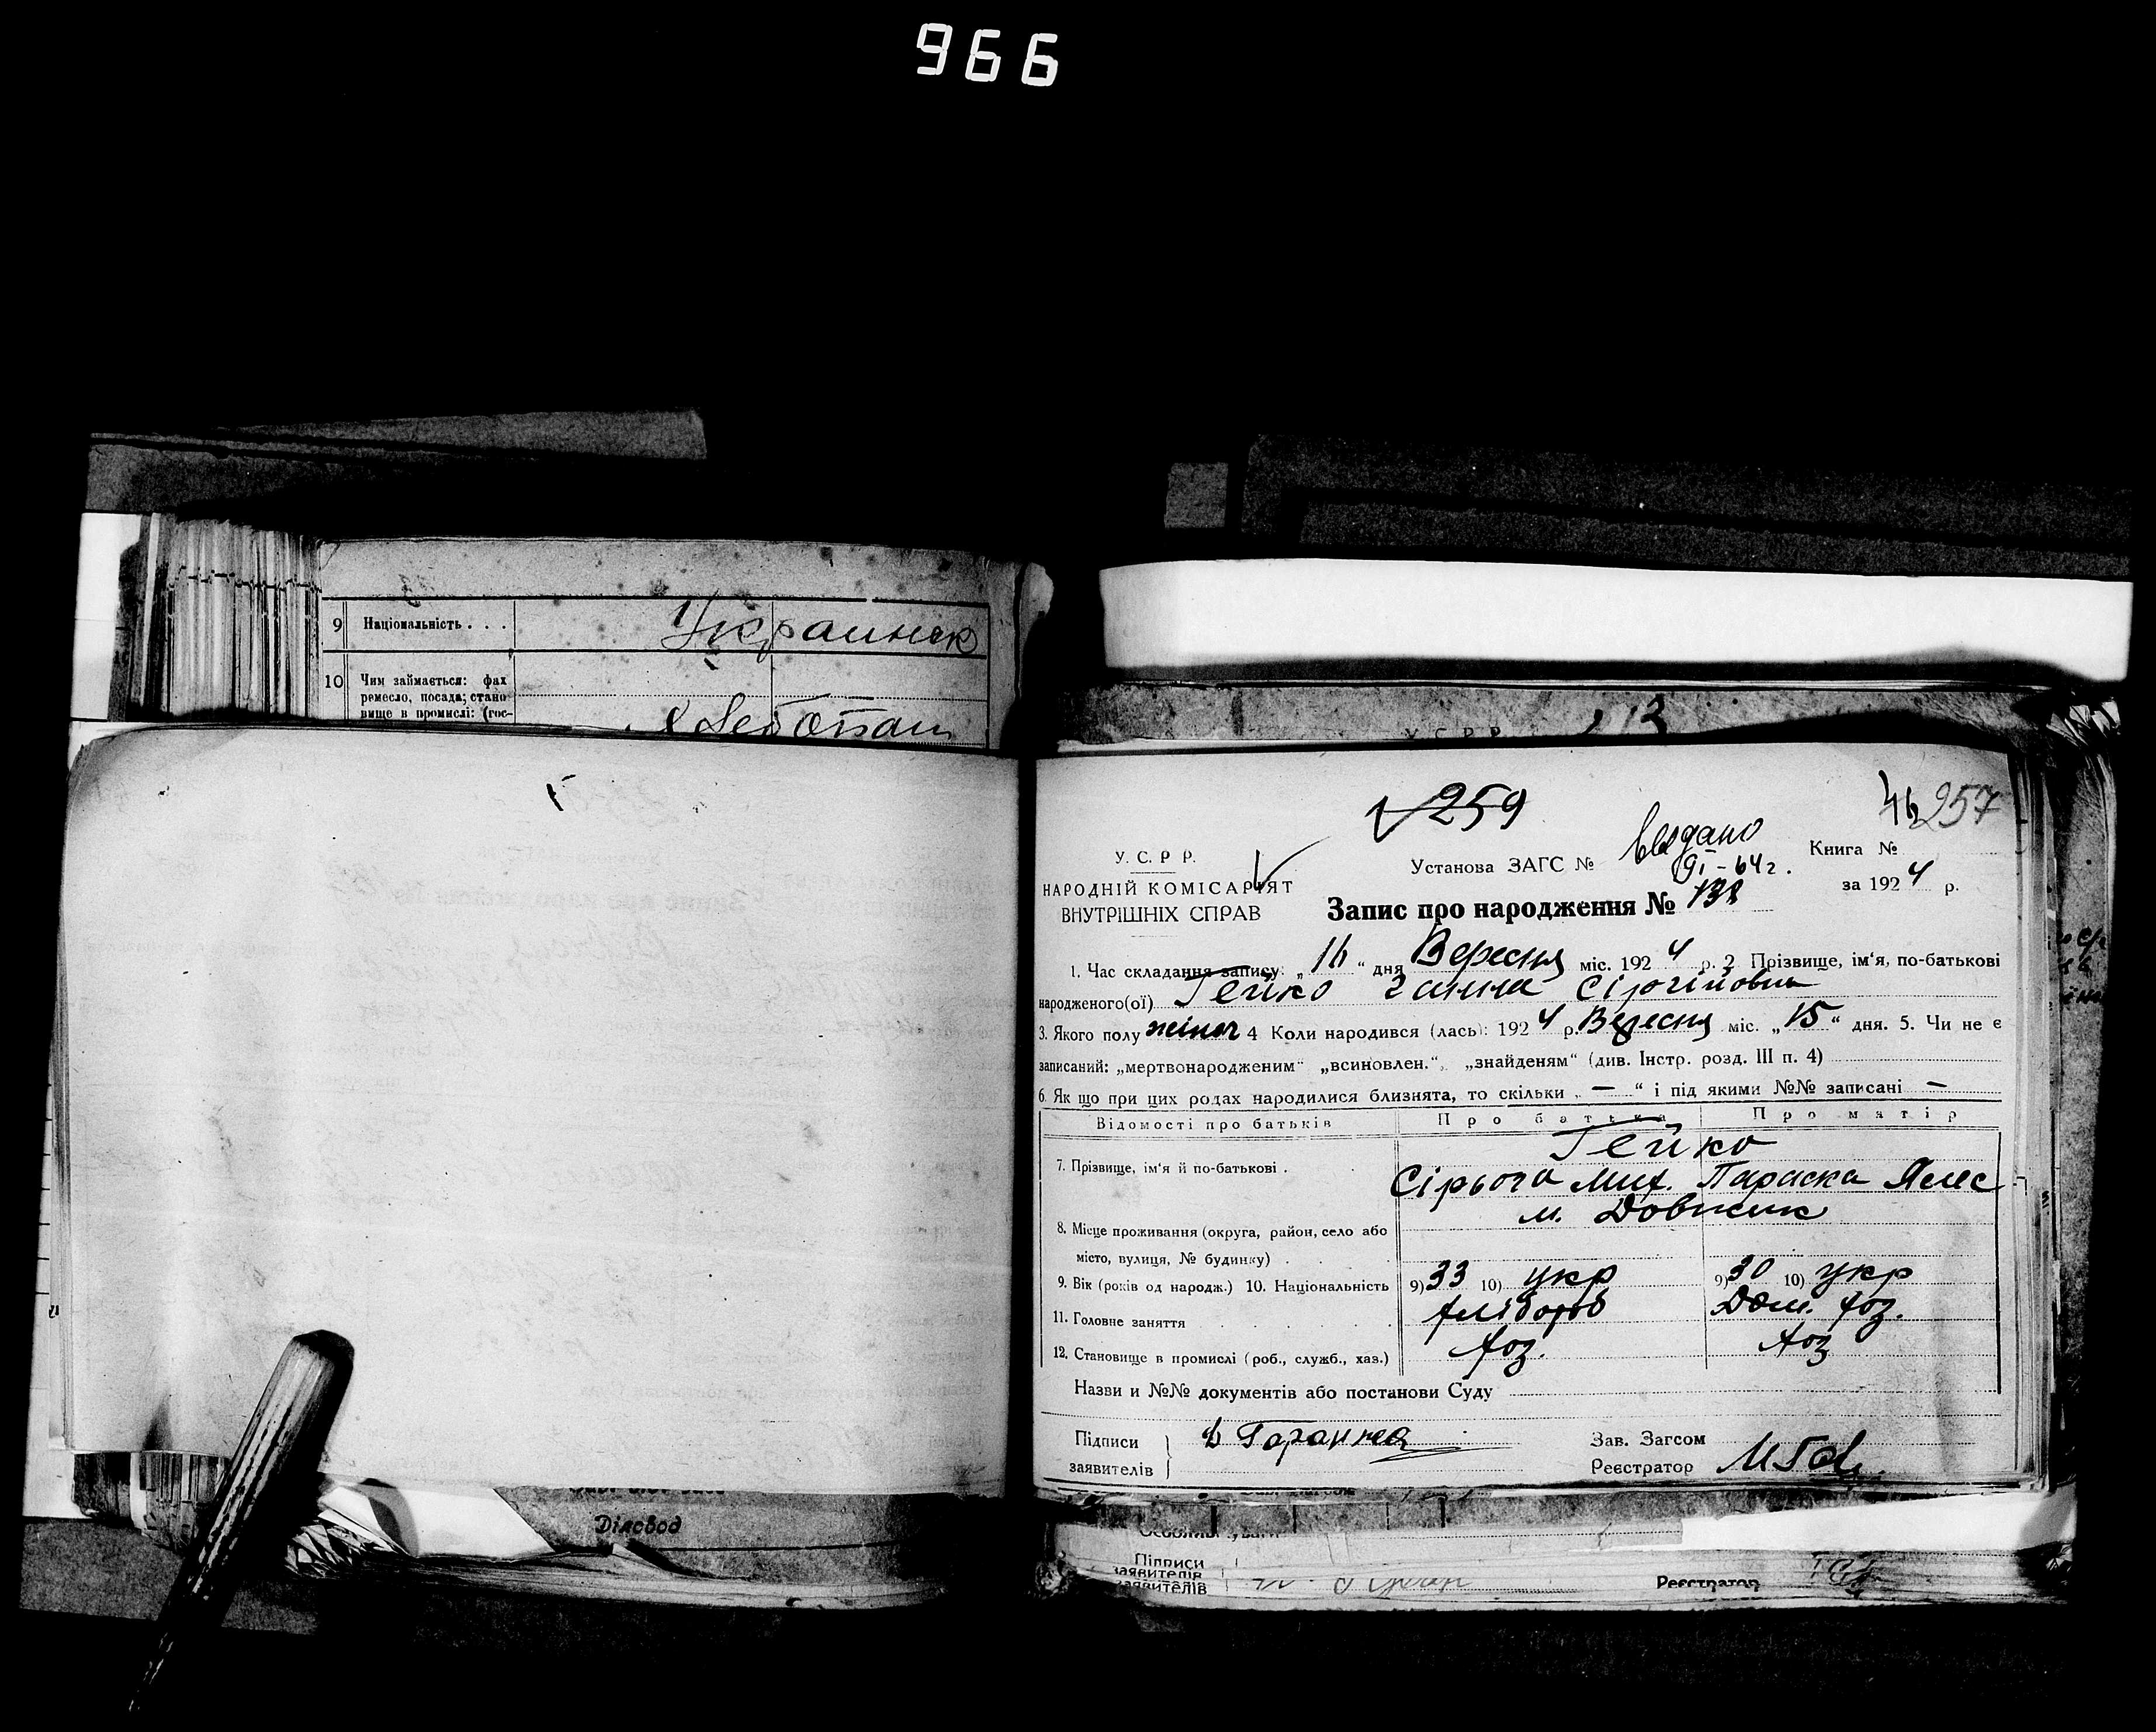 966
9 Національність . . . Украинск
10 Чим займається: фах
ремесло, посада; стано-
вище в промислі: (гос-
Хлебопаш
Діловод
У.С.Р.Р. 13
259
46 257
У. С. Р Р.
НАРОДНІЙ КОМІСАРІЯТ
ВНУТРІШНІХ СПРАВ
Установа ЗАГС № выдано Книга №
9/I-64г.
за 1924 р.
Запис про народження № 138
1. Час складання запису: „16“ дня Вересня міс. 1924 р. 2 Прізвище, ім'я, по-батькові
народженого(ої) Гейко Ганна Сіргійовна
3. Якого полу жіноч 4 Коли народився (лась): 1924 р. Вересня міс. „15“ дня. 5. Чи не є
записаний: „мертвонародженим“ „всиновлен.“, „знайденям“ (див. Інстр. розд. III п. 4)
6. Як що при цих родах народилися близнята, то скільки „ — “ і під якими №№ записані —
Відомості про батьків Про батька Про матір
Гейко
7. Прізвище, ім'я й по-батькові . Сірьога Мих. Параска
м. Довжик
8. Місце проживання (округа, район, село або
місто, вулиця, № будинку) .
9. Вік (років од народж.) 10. Національність 9) 33 10) укр 9) 30 10) укр
11. Головне заняття хлібороб Дом. хоз.
12. Становище в промислі (роб., служб., хаз.) хоз. хоз
Назви и №№ документів або постанови Суду
Підписи
заявителів Гаранжа
Зав. Загсом
Реєстратор
Підписи
заявителів
заявителів
Реєстратор